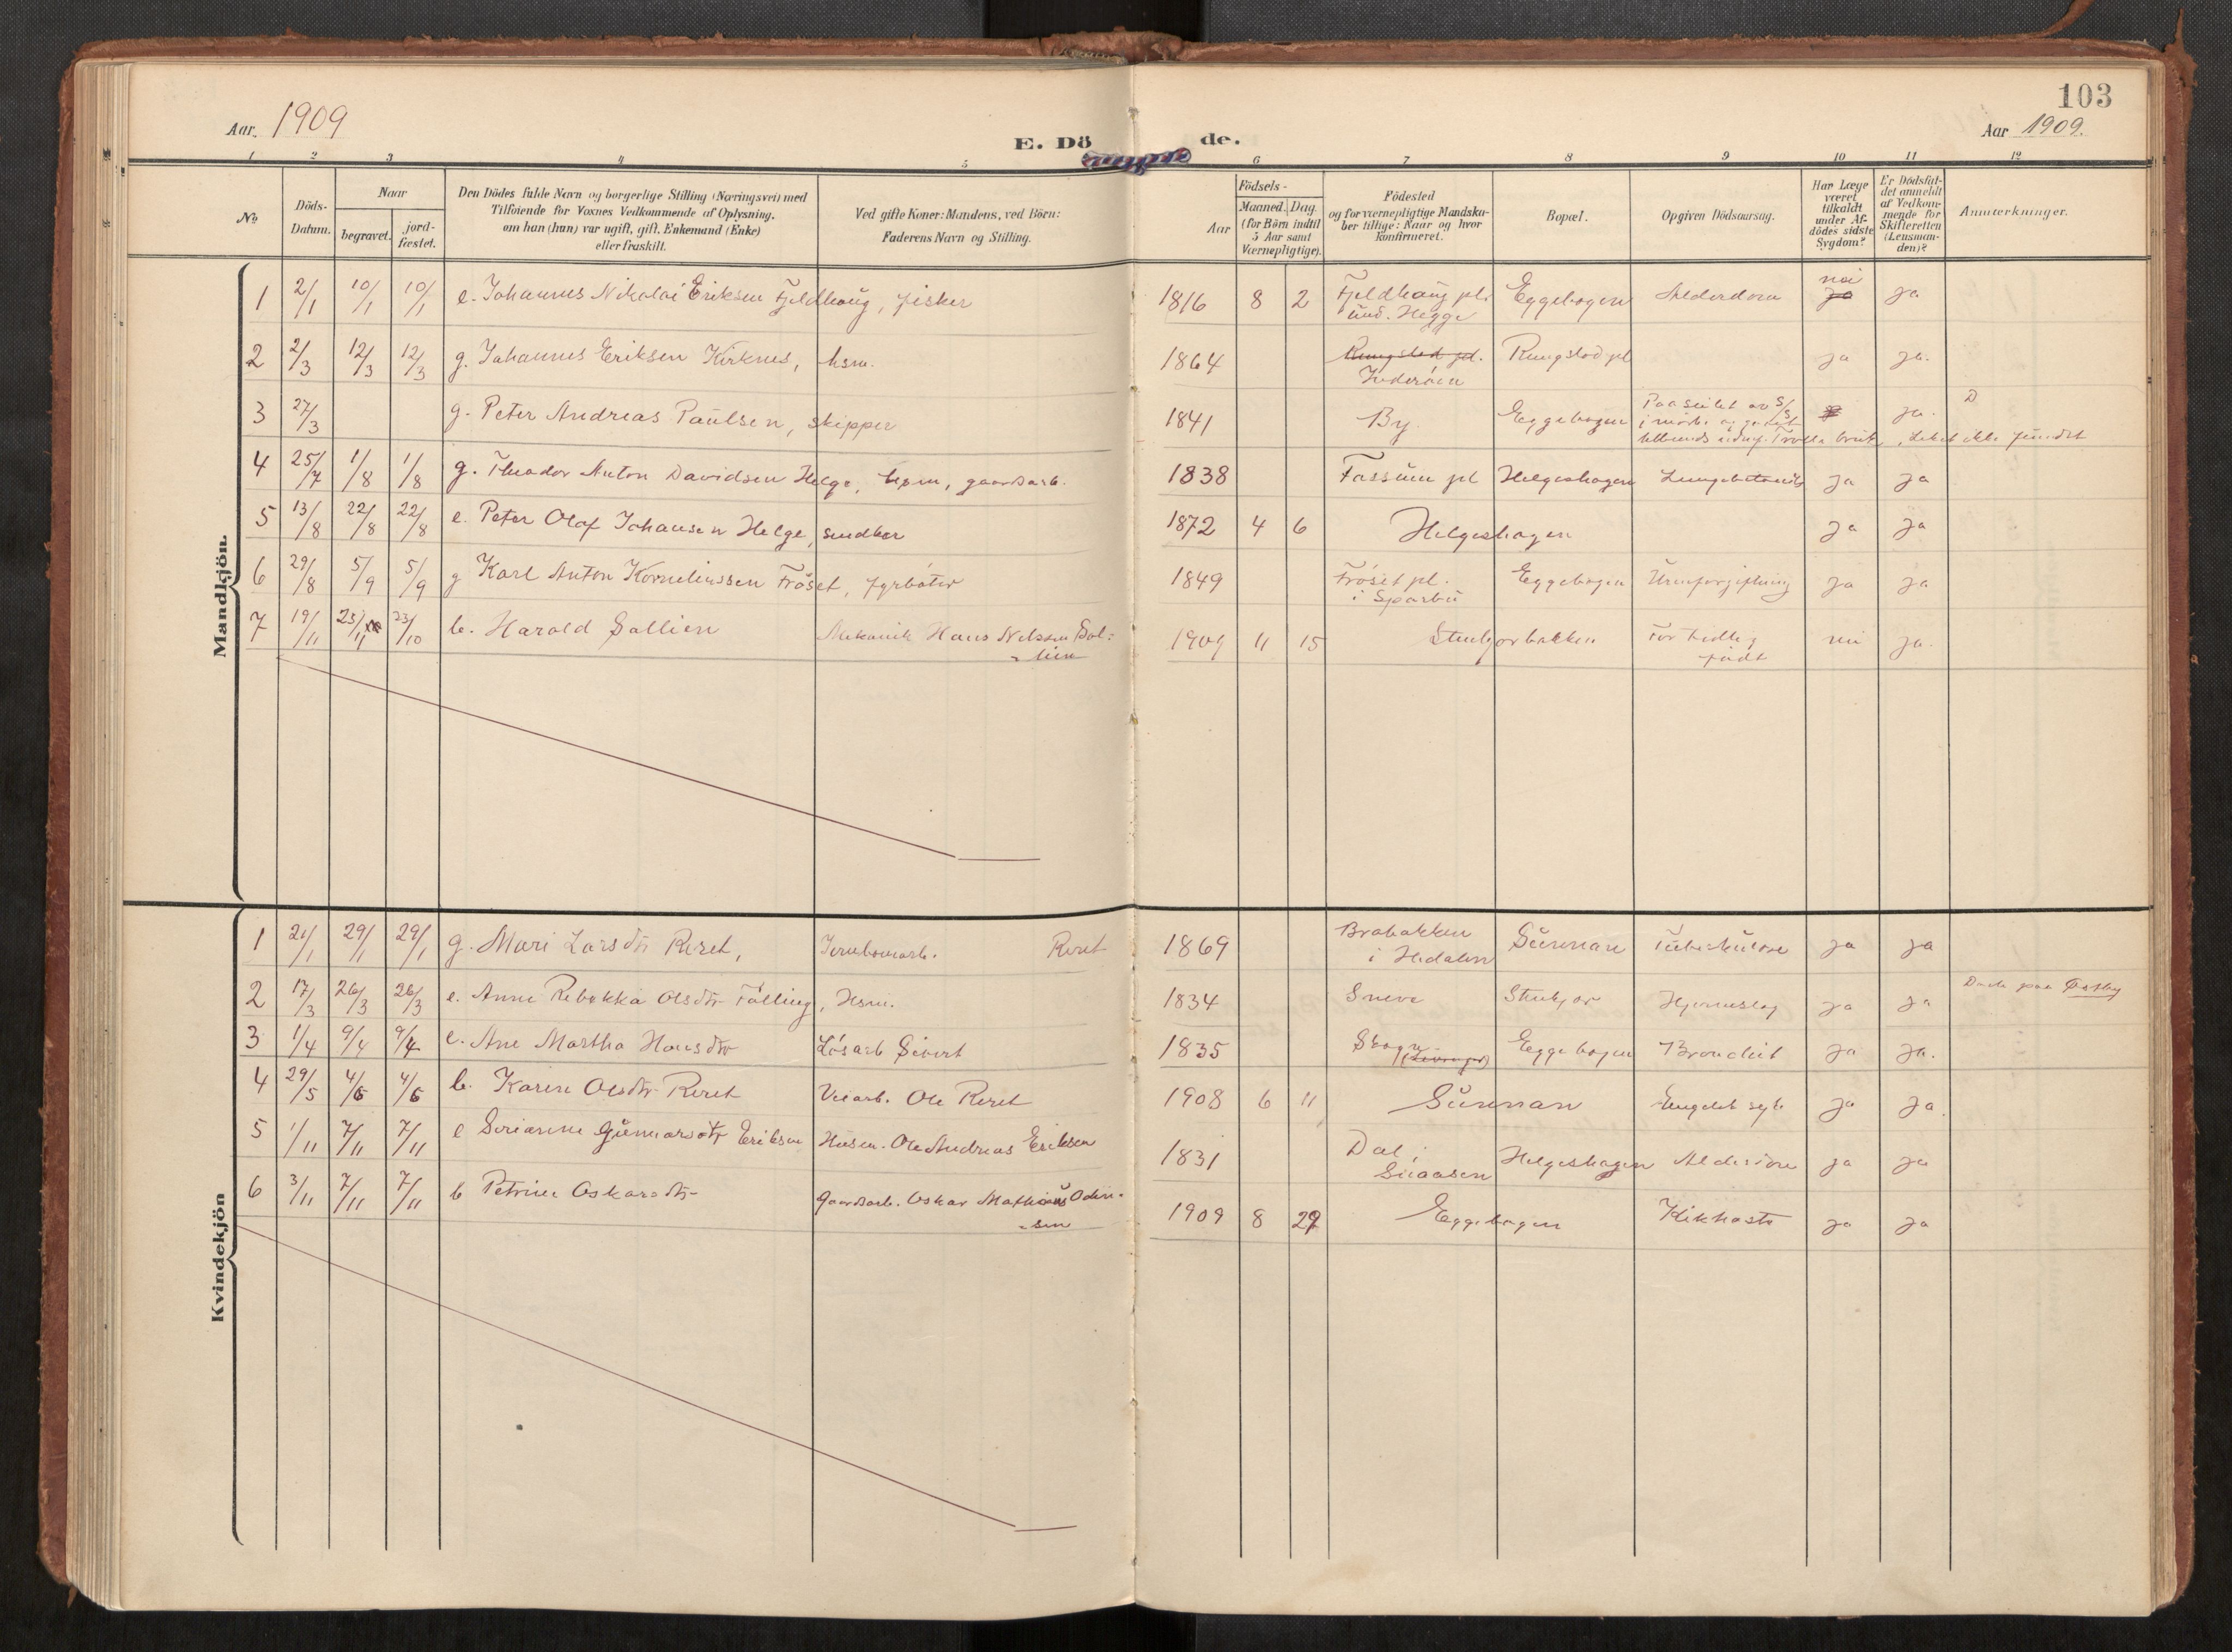 103
Aar. 1909
Aar 1909.
E. Dö de.
1 2 3 4 5 6 7 8 9 10 11 12
No
Döds-
Datum.
Naar
begravet.
jord-
fæstet.
Den Dödes fulde Navn og borgerlige Stilling (Næringsvei) med
Tilföiende for Voxnes Vedkommende af Oplysning,
om han (hun) var ugift, gift, Enkemand (Enke)
eller fraskilt.
Ved gifte Koner: Mandens, ved Börn:
Faderens Navn og Stilling.
Födsels-
Aar
Maaned. Dag.
(for Börn indtil
5 Aar samt
Værnepligtige).
Födested
og for værnepligtige Mandska-
ber tillige: Naar og hvor
konfirmeret.
Bopæl.
Opgiven Dödsaarsag.
Har Læge
været
tilkaldt
under Af-
dödes sidste
Sygdom?
Er Dödsfal-
det anmeldt
af Vedkom-
mende for
Skifteretten
(Lensman-
den)?
Anmærkninger.
Mandkjön.
1 2/1 10/1 10/1 e. Johannes Nikolai Eriksen Fjeldhaug, fisker 1816 8 2 Fjeldhaug pl. und. Hegge Eggebogen Alderdom nei ja ja
2 2/3 12/3 12/3 g. Johannes Eriksen Kirknes, hsm. 1864 Rungstad pl. Inderöen Rungstad pl ja ja.
3 27/3 g. Peter Andreas Paulsen, skipper 1841 By Eggebogen ja. D
i mörke og
bruk, Liket ikke fundet
4 25/7 1/8 1/8 g. Theodor Anton Davidsen Helge, gaardsarb. 1838 Fossum pl Helgeshagen ja ja
5 13/8 22/8 22/8 e. Peter Olaf Johansen Helge, snedker 1872 4 6 Helgeshagen ja ja
6 29/8 5/9 5/9 g Karl Anton Korneliussen Fröset, fyrböter 1849 Fröset pl. i Sparbu Eggebogen Urinforgiftning ja ja
7 19/11 23/11 23/10 b. Harald Sallien Mekanik Hans Nelssen Sal=
lien 1909 11 15 Stenkjerbakken For tidlig
födt nei ja.
Kvindekjön
1 21/1 29/1 29/1 g. Mari Larsdtr Reret, Jernbanearb. Reret 1869 Brabakken
i Hedalen Sunnan Tuberkulose ja ja
2 17/3 26/3 26/3 e. Anne Rebekka Olsdtr Fölling, Hsm. 1834 Sneve Stenkjær Hjerneslag ja ja Döde paa Östby
3 1/4 9/4 9/4 e. Ane Martha Hansdtr Lösarb Sivert 1835 Skogn Eggebogen Bronchit ja ja.
4 29/5 4/6 4/6 b. Karen Olsdtr Reret Veiarb. Ole Reret 1908 6 11 Sunnan Engelsk syke ja ja.
5 1/11 7/11 7/11 e Serianne Gunnarsdtr Eriksen Husm. Ole Andreas Eriksen 1831 Dal i
Snaasen Helgeshagen ja ja
6 3/11 7/11 7/11 b Petrine Oskarsdtr Gaardsarb. Oskar Mathias Odin-
sen 1909 8 29 Eggebogen Kikhoste ja ja